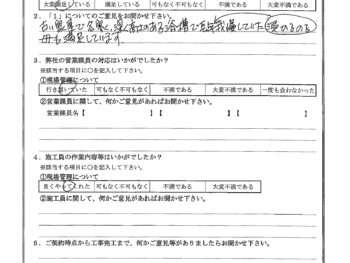 大変満足している 満足している 可も不可もなく 不満である 大変不満である
2．「1」についてのご意見をお聞かせ下さい。
母も満足しています。
3．弊社の営業課員の対応はいかがでしたか？
※該当する項目に〇を記入して下さい。
①現場管理について
行き届いていた 可もなく不可もなく 不満である 大変不満である 一度も会わなかった
②営業課員に関して、何かご意見があればお聞かせ下さい。
営業課員名【 】【 】
4．施工員の作業内容等はいかがでしたか？
※該当する項目に〇を記入して下さい。
①現場管理について
良くやってくれた 可もなく不可もなく 不満である 大変不満である
②施工員に関して、何かご意見があればお聞かせ下さい。
5．ご契約時点から工事完工まで、何かご意見等がありましたらお聞かせ下さい。